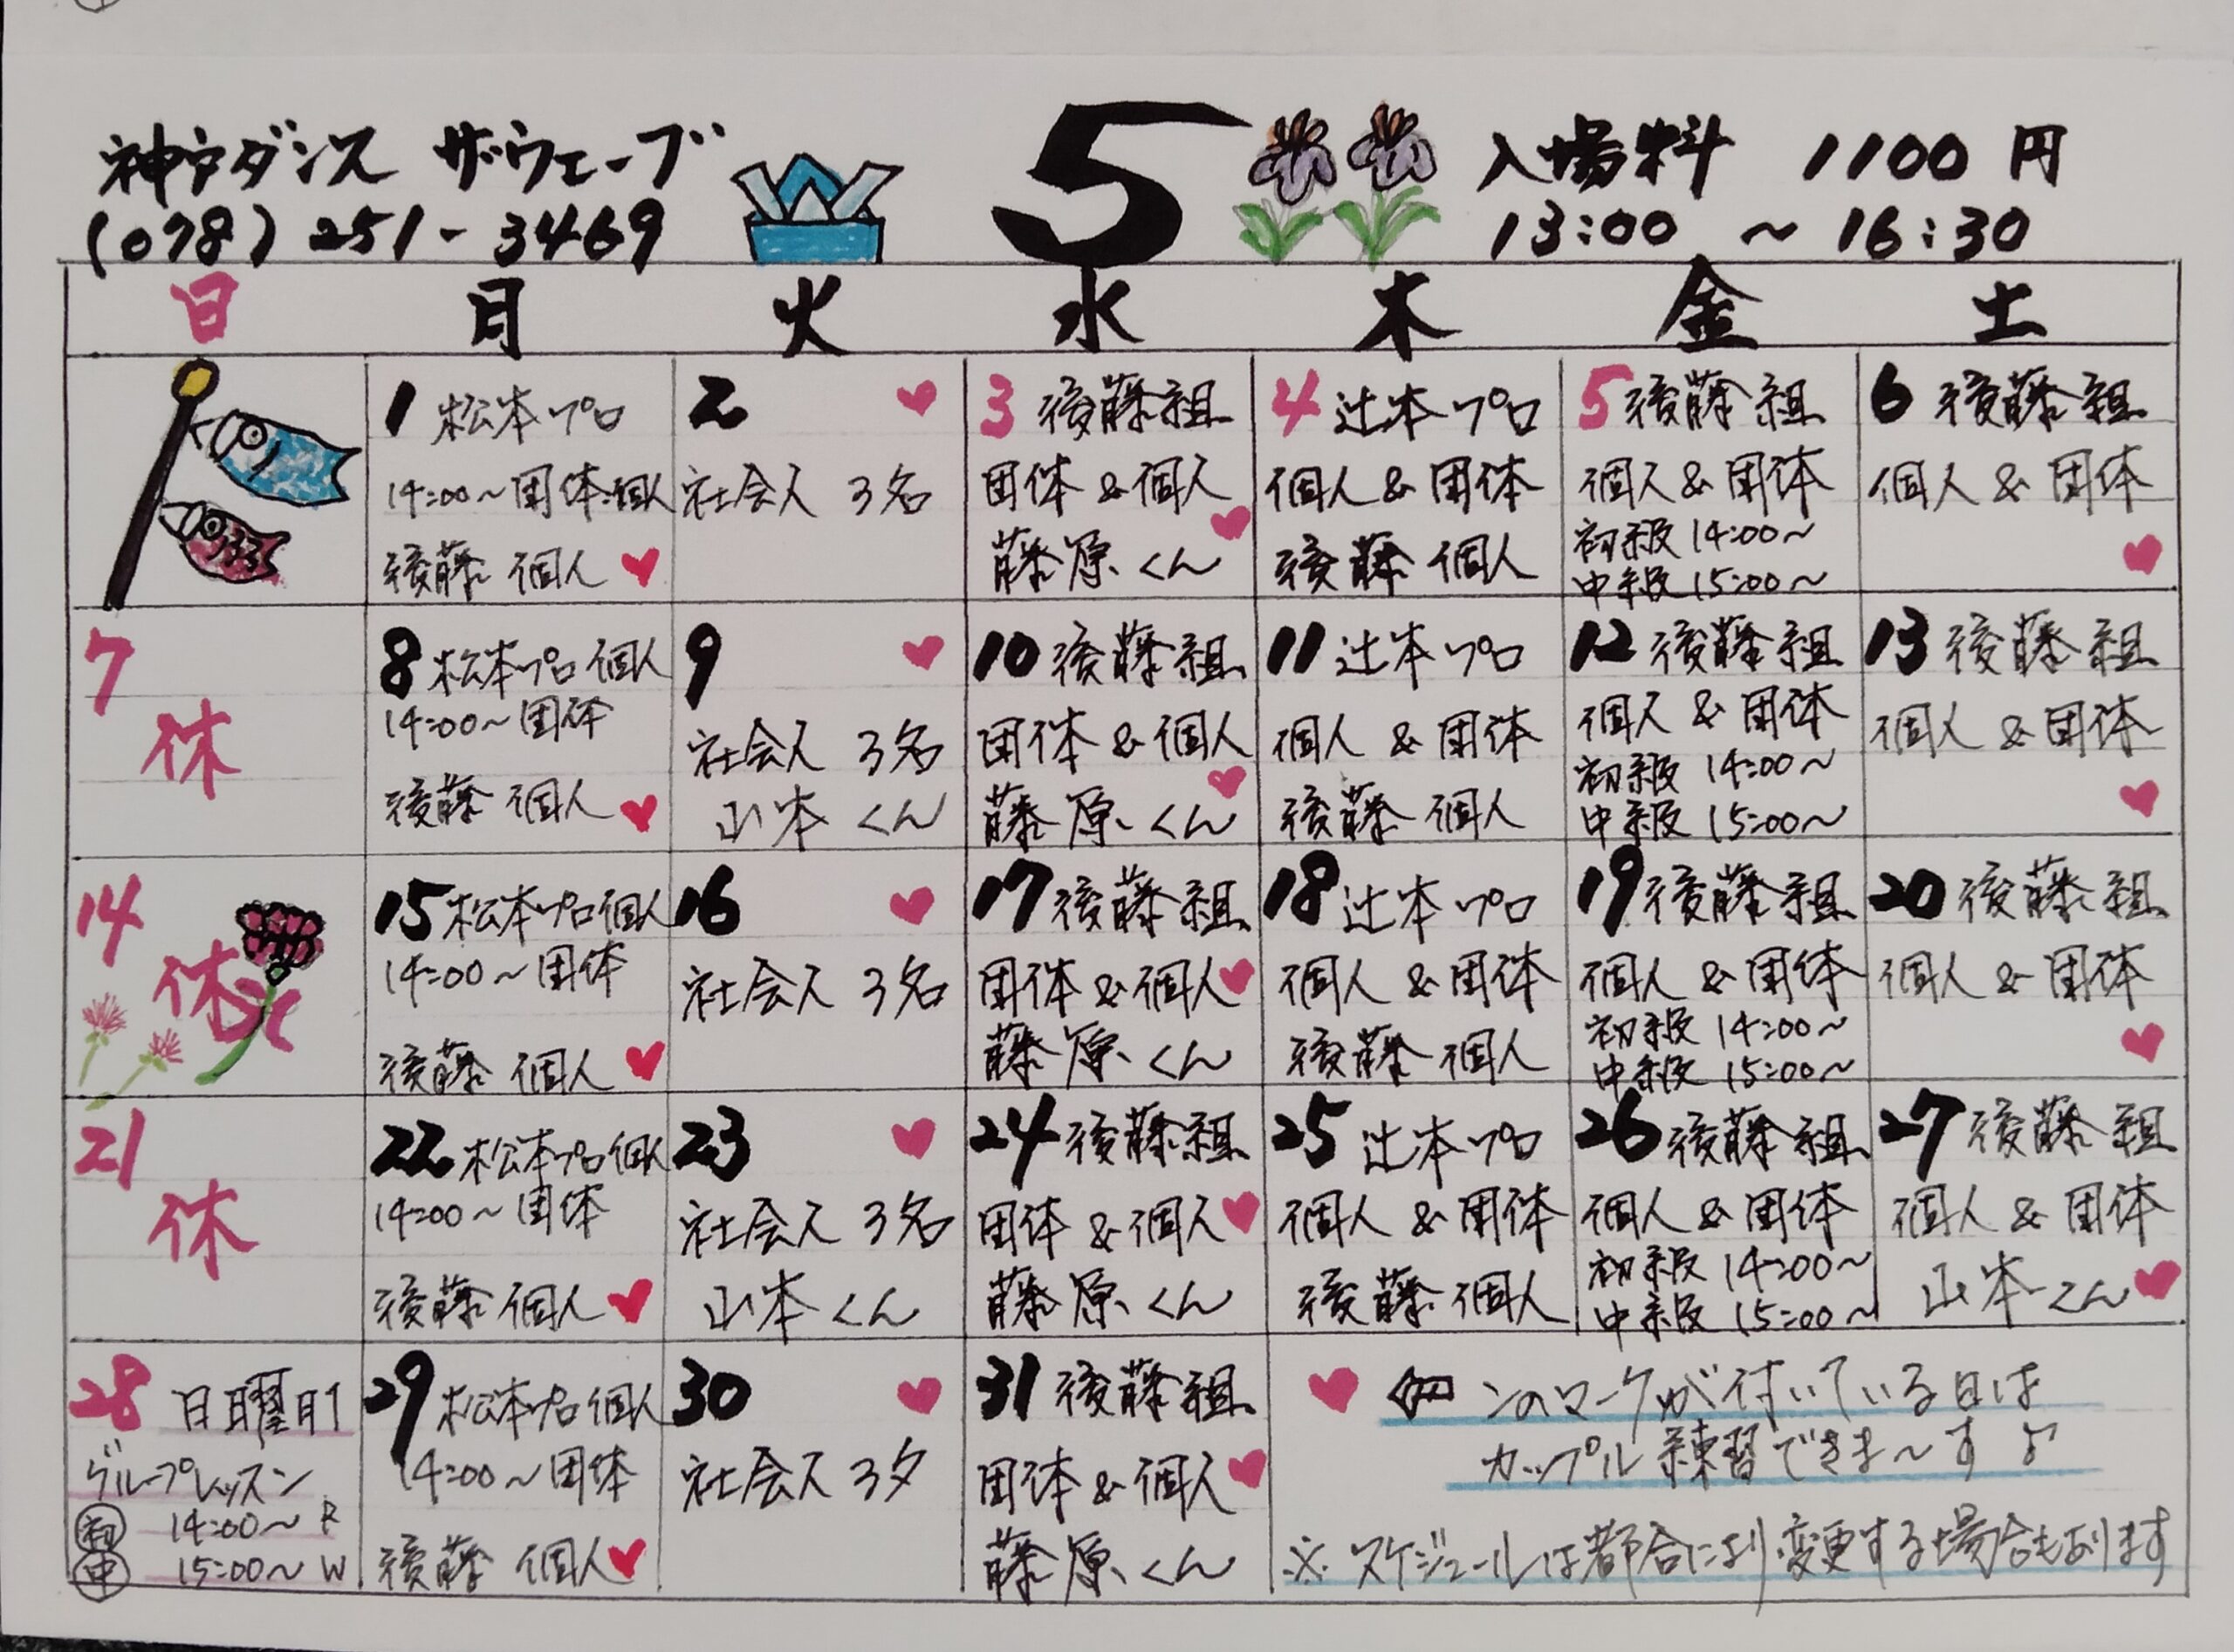 神戸ダンス ザウェーブ
(078)251-3469
5
入場料 1100円
13:00 ~ 16:30
日 月 火 水 木 金 土
1 松本プロ
14:00~団体・個人
後藤 個人 ♥
2 ♥
社会人 3名
3 後藤組
団体&個人 ♥
藤原くん
4 辻本プロ
個人&団体
後藤 個人
5 後藤組
個人&団体
初級 14:00~
中級 15:00~
6 後藤組
個人&団体
♥
7
休
8 松本プロ個人
14:00~団体
後藤 個人 ♥
9 ♥
社会人 3名
山本くん
10 後藤組
団体&個人 ♥
藤原くん
11 辻本プロ
個人&団体
後藤 個人
12 後藤組
個人&団体
初級 14:00~
中級 15:00~
13 後藤組
個人&団体
♥
14
休
15 松本プロ個人
14:00~団体
後藤 個人 ♥
16 ♥
社会人 3名
17 後藤組
団体&個人 ♥
藤原くん
18 辻本プロ
個人&団体
後藤 個人
19 後藤組
個人&団体
初級 14:00~
中級 15:00~
20 後藤組
個人&団体
♥
21
休
22 松本プロ個人
14:00~団体
後藤 個人 ♥
23 ♥
社会人 3名
山本くん
24 後藤組
団体&個人 ♥
藤原くん
25 辻本プロ
個人&団体
後藤 個人
26 後藤組
個人&団体
初級 14:00~
中級 15:00~
27 後藤組
個人&団体
山本くん ♥
28 日曜日
グループレッスン
㊥ 15:00~ W
29 松本プロ個人
14:00~団体
後藤 個人 ♥
30 ♥
社会人 3夕
31 後藤組
団体&個人 ♥
藤原くん
♥ ⇦ このマークが付いている日は
カップル練習できま~す♪
※スケジュールは都合により変更する場合もあります